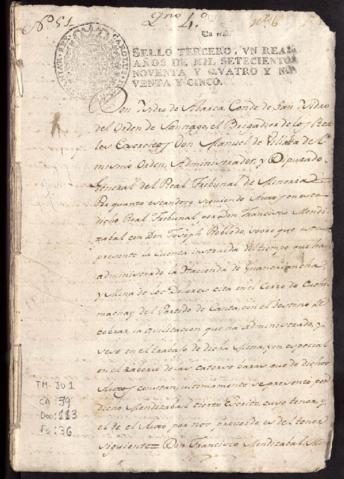 Nº 51
Un real
SELLO TERCERO, VN REAL
AÑOS DE MIL SETECIENTOS
NOVENTA Y QVATRO Y NO-
VENTA Y CINCO.
Don Isidro de Abarca Conde de San Isidro
del Orden de Santiago, el Brigadier de los Reales
Exercitos Don Manuel de Villalta del
mismo Orden, Administrador, y Diputado
General del Real Tribunal de Mineria
Por quanto estandose siguiendo Autos en este
dicho Real Tribunal por Don Francisco Mendi-
zabal con Don Joseph Robledo, sobre que
presente la Cuenta instruida del tiempo que ha
administrado la Hacienda de
y Mina de los Dolores cita en el Cerro de
del Partido de Canta, con el destino de
cobrar la que ha administrado, y
en el trabajo de dicha Mina, y en especial
en el de las varas que de dichos
Autos constan; ultimamente se presento por
dicho Mendizabal cierto Escrito, cuyo tenor, y
el de el Auto por nos proveido es del tenor
siguiente = Don Francisco Mendizabal
TM-JU 1
CA: 39
Doc: 113
fs: 36